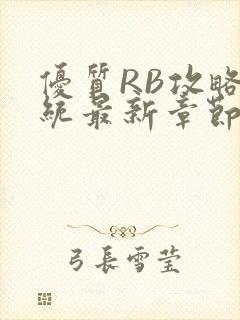 優質RB攻略
統最新章節
弓長雪莹